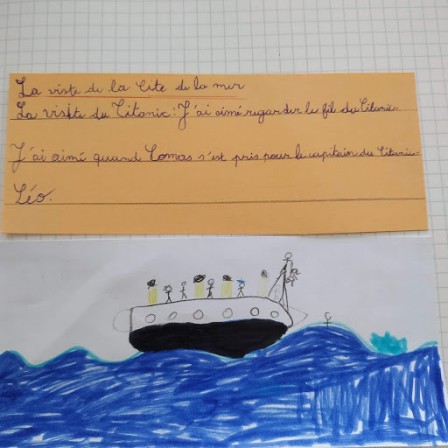 La viste de la Cite de la mer
La visite du Titanic : J'ai aimé regarder le fil du Titanic.
J'ai aimé quand Tomas s'est pris pour le capitain du Titanic.
Léo.